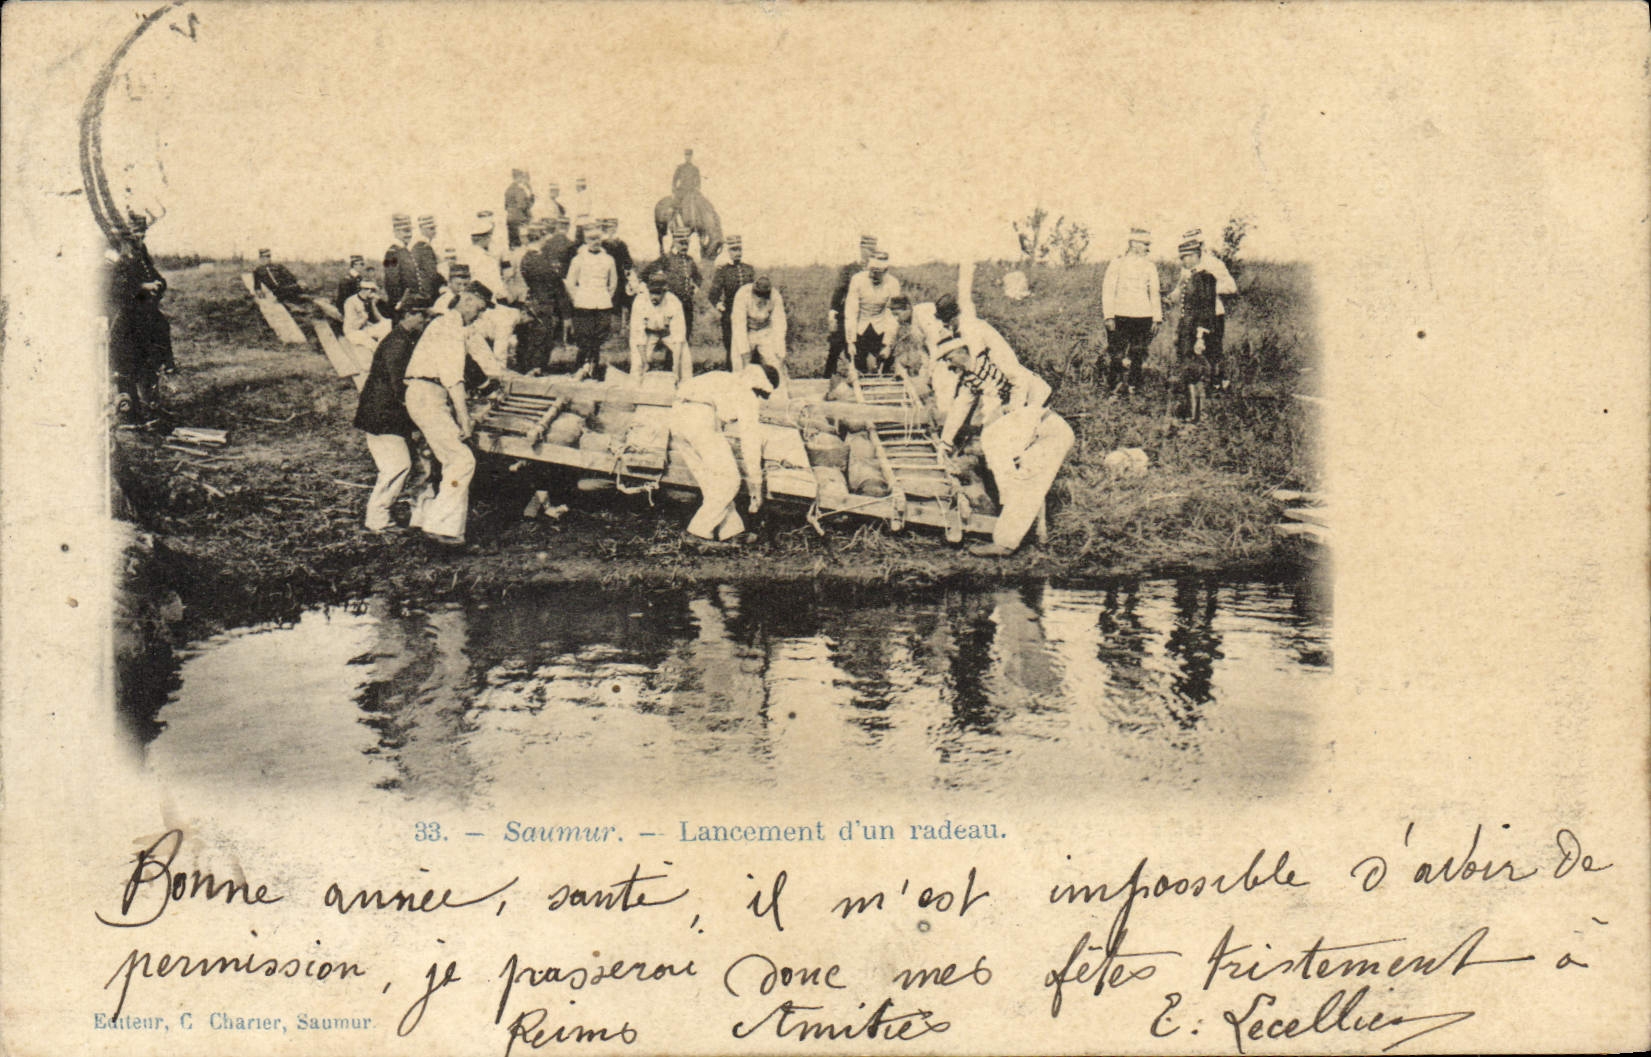 33. — Saumur. — Lancement d'un radeau.
Bonne année, santé, il m'est impossible d'avoir de
permission, je passerai donc mes fêtes tristement à
Reims Amitiés E. Lecellier
Editeur, C Charier, Saumur.